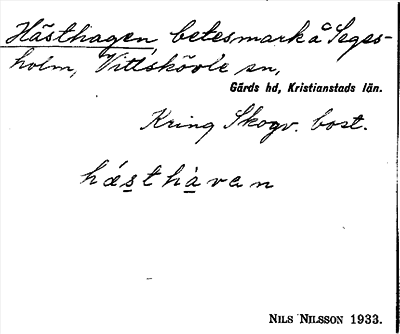 Hästhagen, betesmark å Seges-
holm, Vittskövle sn,
Gärds hd, Kristianstads län.
Kring Skogv. bost.
hásthàvan
NILS NILSSON 1933.